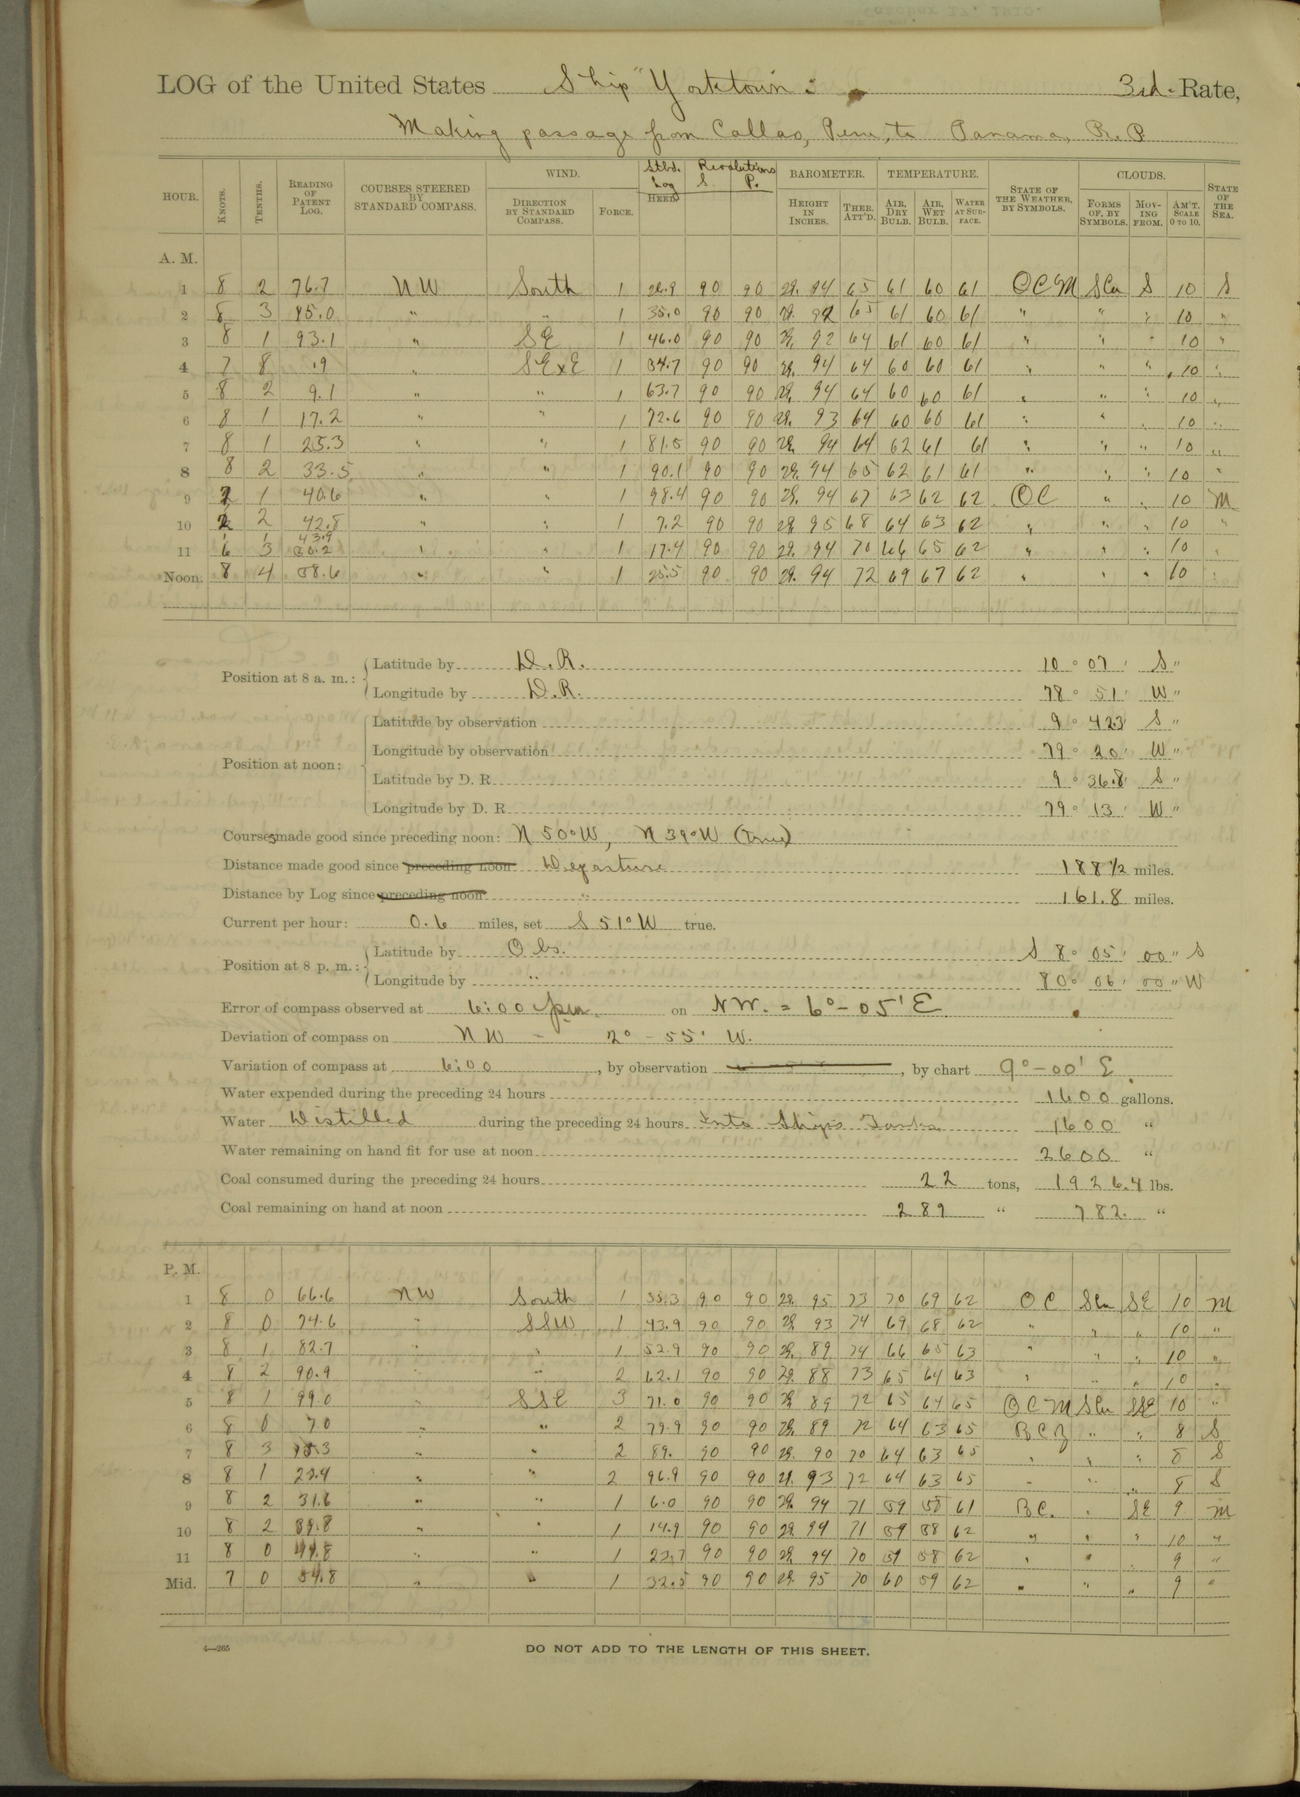 LOG of the United States Ship "Yorktown" 3rd. Rate,
Making passage from Callao, Peru, to Panama, R. P.
HOUR. KNOTS. TENTHS. READING OF PATENT LOG. COURSES STEERED BY STANDARD COMPASS. WIND. DIRECTION BY STANDARD COMPASS. FORCE. Stbd. Log HEEL Revolutions S. P. BAROMETER. HEIGHT IN INCHES. THER. ATT'D. TEMPERATURE. AIR, DRY BULB. AIR, WET BULB. WATER AT SURFACE. STATE OF THE WEATHER, BY SYMBOLS. CLOUDS. FORMS OF, BY SYMBOLS. MOVING FROM. AM'T. SCALE 0 TO 10. STATE OF THE SEA.
A. M.
1 8 2 76.7 NW South 1 90 90 29. 94 65 61 60 61 OCM SCu S 10 S
2 8 3 85.0 " " 1 35.0 90 90 29. 92 65 61 60 61 " " " 10 "
3 8 1 93.1 " SE 1 46.0 90 90 29. 92 64 61 60 61 " " " 10 "
4 7 8 .9 " SExE 1 54.7 90 90 29. 94 64 60 60 61 " " " 10 "
5 8 2 9.1 " " 1 63.7 90 90 29. 94 64 60 60 61 " " " 10 "
6 8 1 17.2 " " 1 72.6 90 90 29. 93 64 60 60 61 " " " 10 "
7 8 1 25.3 " " 1 81.5 90 90 29. 94 64 62 61 61 " " " 10 "
8 8 2 33.5 " " 1 90.1 90 90 29. 94 65 62 61 61 " " " 10 "
9 7 1 40.6 " " 1 98.4 90 90 29. 94 67 63 62 62 OC " " 10 M
10 2 2 42.8 " " 1 7.2 90 90 29. 95 68 64 63 62 " " " 10 "
1 1 43.9
11 6 3 50.2 " " 1 17.4 90 90 29. 94 70 66 65 62 " " " 10 "
Noon. 8 4 58.6 " " 1 25.5 90 90 29. 94 72 69 67 62 " " " 10 "
Position at 8 a. m.: Latitude by D. R. 10 ° 07 ' S "
Longitude by D. R. 78 ° 51 ' W "
Position at noon: Latitude by observation 9 ° 42.3 ' S "
Longitude by observation 79 ° 20 ' W "
Latitude by D. R. 9 ° 36.8 ' S "
Longitude by D. R. 79 ° 13 ' W "
Courses made good since preceding noon: N 50° W, N 39° W (true)
Distance made good since preceding noon Departure 188½ miles.
Distance by Log since preceding noon " 161.8 miles.
Current per hour: 0.6 miles, set S 51° W true.
Position at 8 p. m.: Latitude by Obs. S 8 ° 05 ' 00 " S
Longitude by " 80 ° 06 ' 00 " W
Error of compass observed at 6:00 pm. on NW. = 6° - 05' E
Deviation of compass on NW - 2° - 55' W.
Variation of compass at 6:00, by observation, by chart 9° - 00' E.
Water expended during the preceding 24 hours 1600 gallons.
Water Distilled during the preceding 24 hours Into Ships Tanks 1600 "
Water remaining on hand fit for use at noon 2600 "
Coal consumed during the preceding 24 hours 22 tons, 1926.4 lbs.
Coal remaining on hand at noon 289 " 782. "
P. M.
1 8 0 66.6 NW South 1 35.3 90 90 29. 95 73 70 69 62 OC SCu SE 10 M
2 8 0 74.6 " SSW 1 43.9 90 90 29. 93 74 69 68 62 " " " 10 "
3 8 1 82.7 " " 1 52.9 90 90 29. 89 74 66 65 63 " " " 10 "
4 8 2 90.9 " " 2 62.1 90 90 29. 88 73 65 64 63 " " " 10 "
5 8 1 99.0 " SSE 3 71.0 90 90 29. 89 72 65 64 65 OCM SCu SSE 10 "
6 8 0 7.0 " " 2 79.9 90 90 29. 89 72 64 63 65 BCZ " " 8 S
7 8 3 15.3 " " 2 89. 90 90 29. 90 70 64 63 65 " " " 8 S
8 8 1 23.4 " " 2 96.9 90 90 29. 93 72 64 63 65 " " " 8 S
9 8 2 31.6 " " 1 6.0 90 90 29. 94 71 59 58 61 BC. " SE 9 M
10 8 2 39.8 " " 1 14.9 90 90 29. 94 71 59 58 62 " " " 10 "
11 8 0 47.8 " " 1 23.7 90 90 29. 94 70 59 58 62 " " " 9 "
Mid. 7 0 54.8 " " 1 32.5 90 90 29. 95 70 60 59 62 " " " 9 "
4—265
DO NOT ADD TO THE LENGTH OF THIS SHEET.